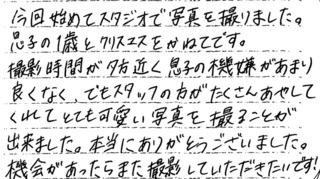 今回始めてスタジオで写真を撮りました。
息子の1歳とクリスマスをかねてです。
撮影時間が夕方近く息子の機嫌があまり
良くなく、でもスタッフの方がたくさんあやして
くれてとても可愛い写真を撮ることが
出来ました。本当にありがとうございました。
機会があったらまた撮影していただきたいです!